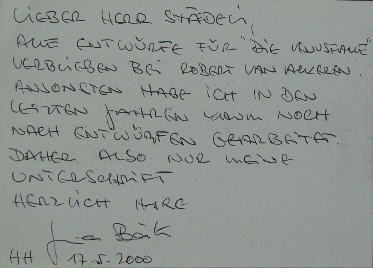 LIEBER HERR STÄDELI,
ALLE ENTWÜRFE FÜR "DIE VENUSFALLE"
VERBLIEBEN BEI ROBERT VAN ACKEREN.
ANSONSTEN HABE ICH IN DEN
LETZTEN JAHREN KAUM NOCH
NACH ENTWÜRFEN GEARBEITET.
DAHER ALSO NUR MEINE
UNTERSCHRIFT
HERZLICH IHRE
HH 17.5.2000